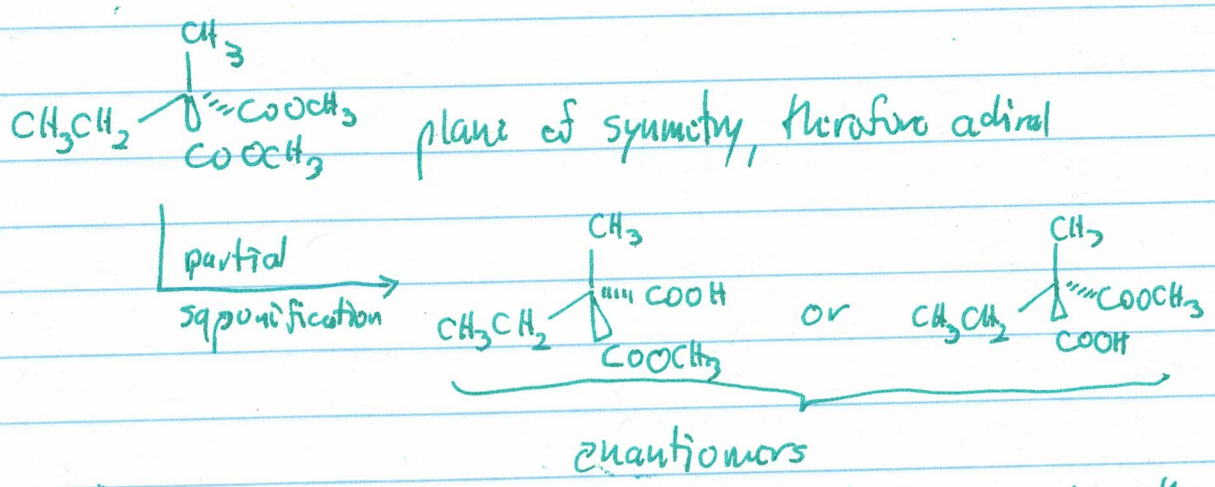 CH3
CH3CH2 COOCH3
COOCH3
plane of symmetry, therefore achiral
partial
saponification
CH3
CH3CH2 COOH
COOCH3
or
CH3
CH3CH2 COOCH3
COOH
enantiomers